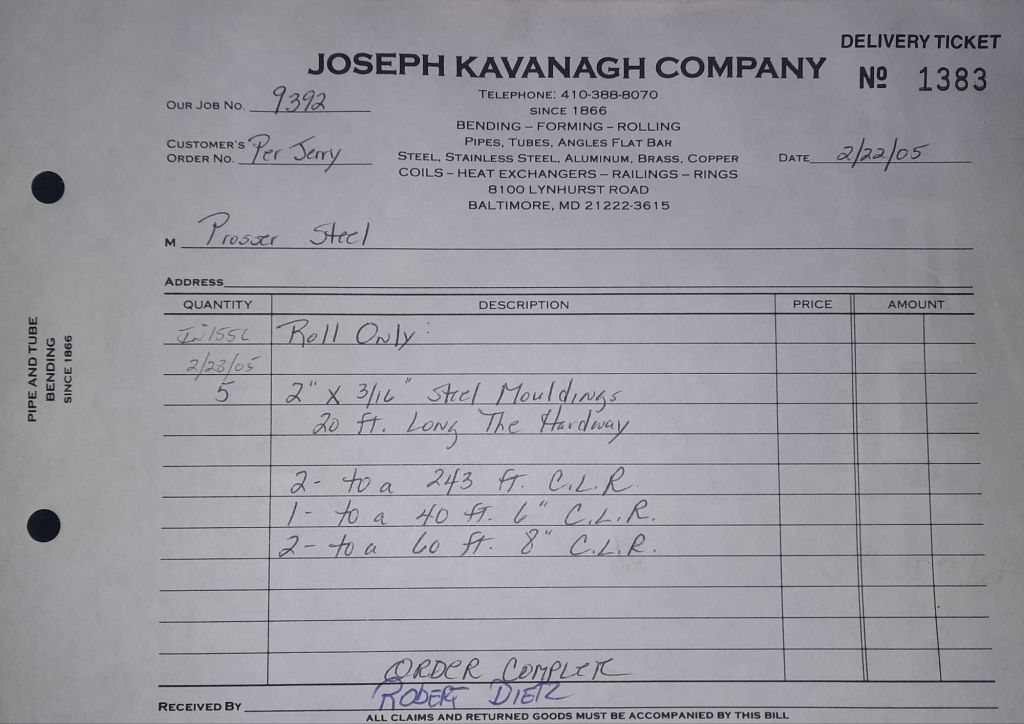 DELIVERY TICKET
JOSEPH KAVANAGH COMPANY
Nº 1383
TELEPHONE: 410-388-8070
OUR JOB NO. 9392
SINCE 1866
BENDING – FORMING – ROLLING
CUSTOMER'S
ORDER NO. Per Jerry
PIPES, TUBES, ANGLES FLAT BAR
STEEL, STAINLESS STEEL, ALUMINUM, BRASS, COPPER
DATE 2/22/05
COILS – HEAT EXCHANGERS – RAILINGS – RINGS
8100 LYNHURST ROAD
BALTIMORE, MD 21222-3615
M Prosser Steel
ADDRESS
QUANTITY DESCRIPTION PRICE AMOUNT
Roll Only:
2/28/05
5 2" X 3/16" Steel Mouldings
20 ft. Long The Hardway
2- to a 243 ft. C.L.R.
1- to a 40 ft. 6" C.L.R.
2- to a 60 ft. 8" C.L.R.
ORDER COMPLETE
RECEIVED BY ROBERT DIETZ
ALL CLAIMS AND RETURNED GOODS MUST BE ACCOMPANIED BY THIS BILL
PIPE AND TUBE
BENDING
SINCE 1866